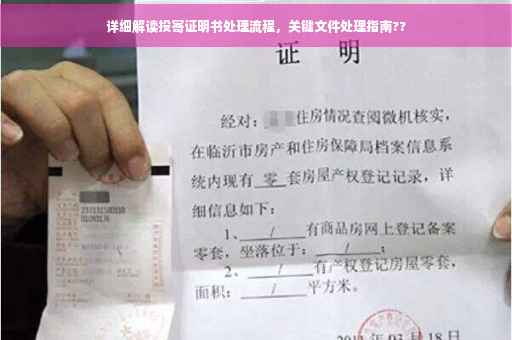 详细解读投寄证明书处理流程，关键文件处理指南??
证 明
经对：住房情况查阅微机核实，
在临沂市房产和住房保障局档案信息系
统内现有 零 套房屋产权登记记录，详
细信息如下：
1、 / 有商品房网上登记备案
零套，坐落位于： / ；
2、 / 有产权登记房屋零套，
面积： / 平方米。
年 03 月 18 日